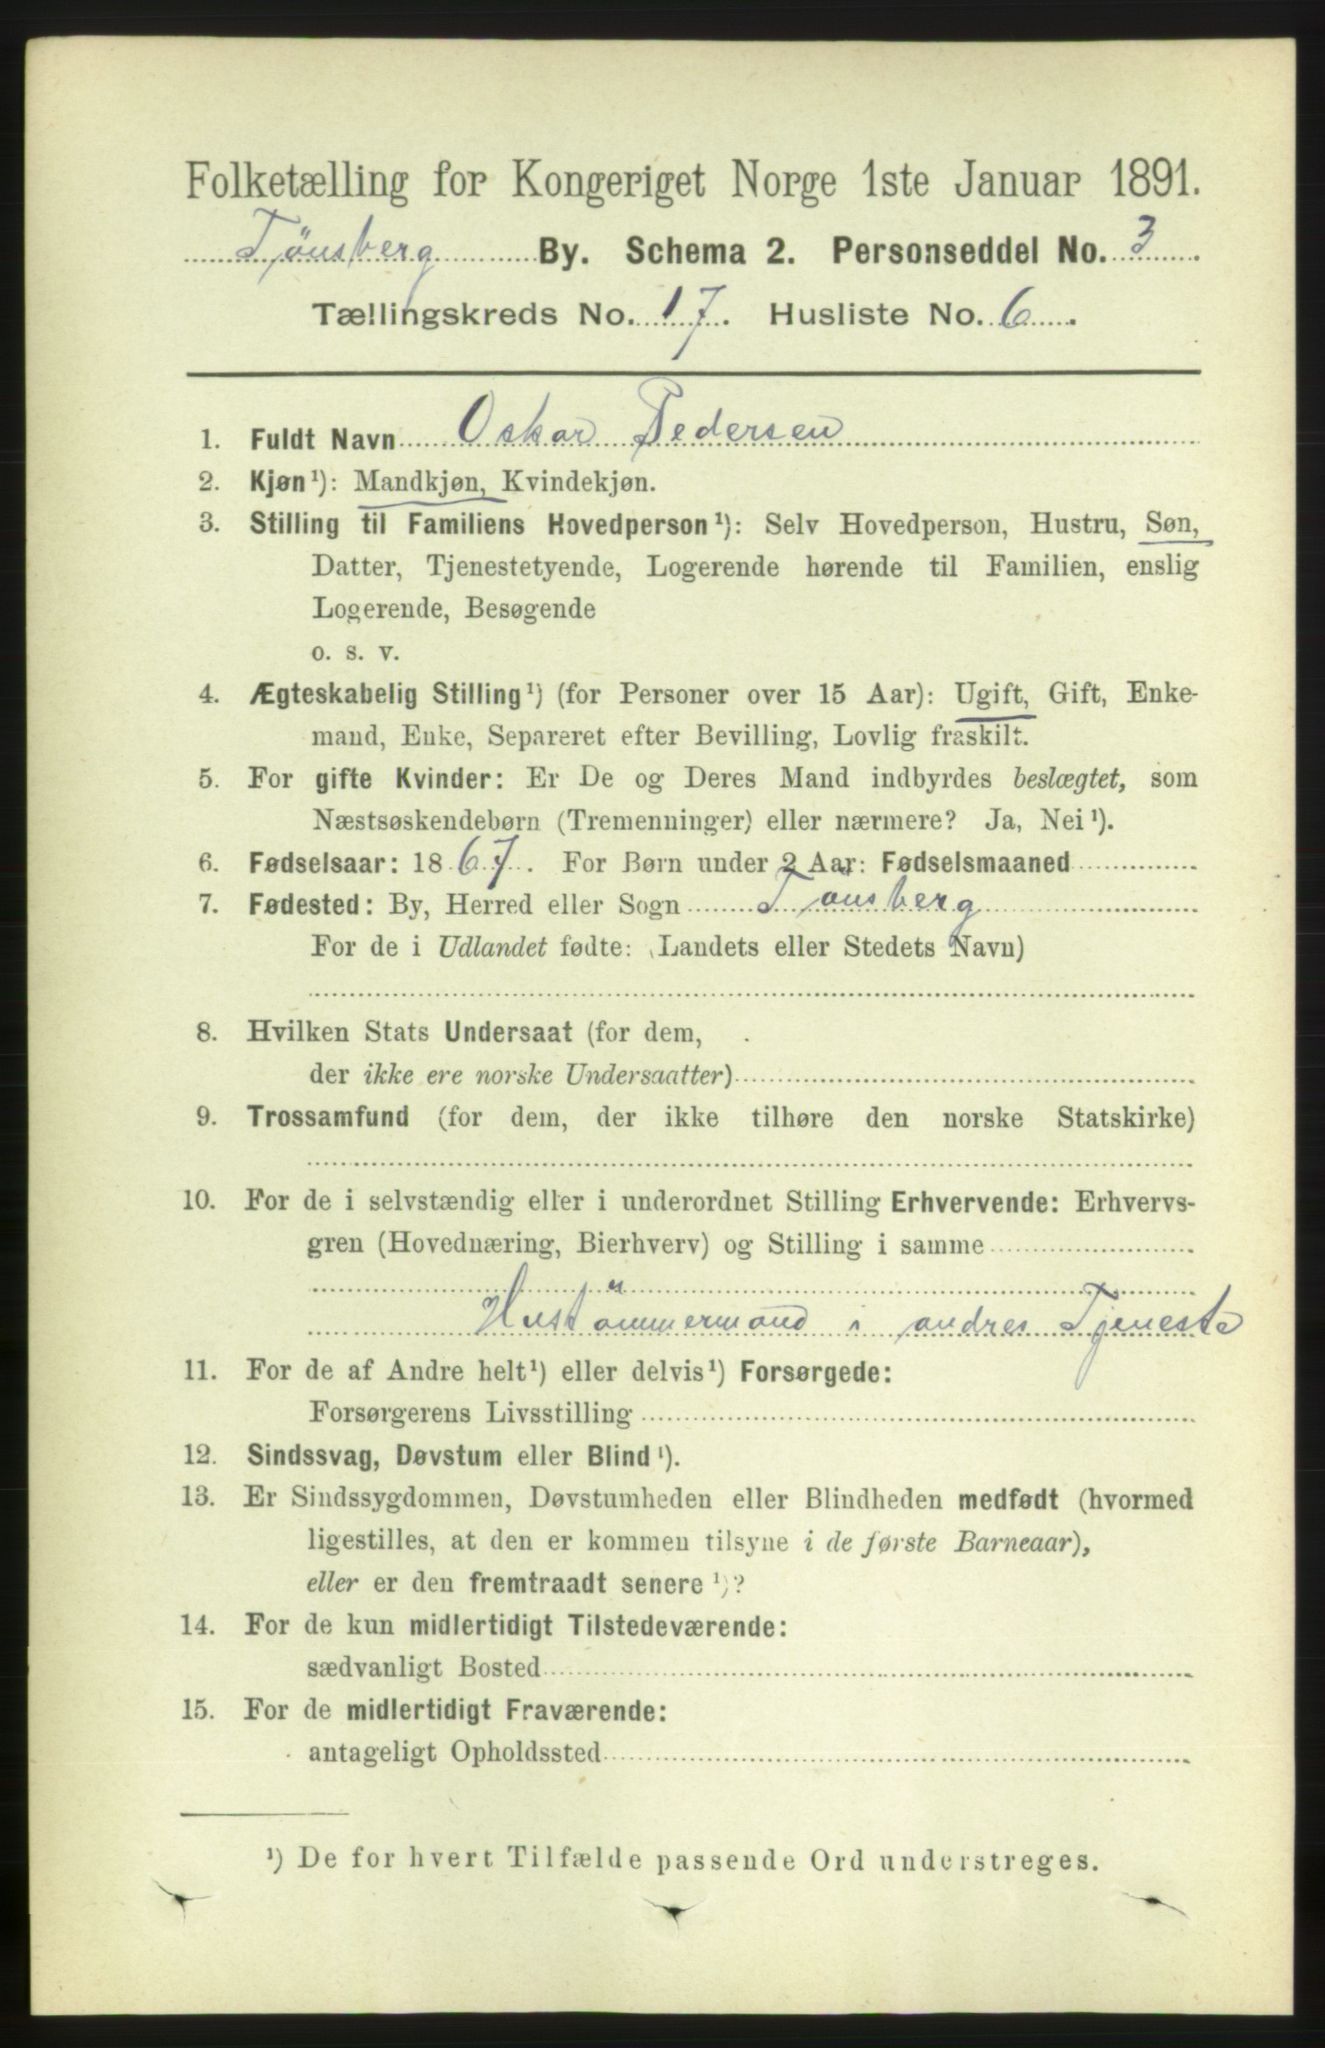 Folketælling for Kongeriget Norge 1ste Januar 1891.
Tønsberg By. Schema 2. Personseddel No. 3.
Tællingskreds No. 17. Husliste No. 6.
1. Fuldt Navn Oskar Pedersen
2. Kjøn¹): Mandkjøn, Kvindekjøn.
3. Stilling til Familiens Hovedperson¹): Selv Hovedperson, Hustru, Søn,
Datter, Tjenestetyende, Logerende hørende til Familien, enslig
Logerende, Besøgende
o. s. v.
4. Ægteskabelig Stilling¹) (for Personer over 15 Aar): Ugift, Gift, Enke-
mand, Enke, Separeret efter Bevilling, Lovlig fraskilt.
5. For gifte Kvinder: Er De og Deres Mand indbyrdes beslægtet, som
Næstsøskendebørn (Tremenninger) eller nærmere? Ja, Nei¹).
6. Fødselsaar: 1867. For Børn under 2 Aar: Fødselsmaaned
7. Fødested: By, Herred eller Sogn Tønsberg
For de i Udlandet fødte: (Landets eller Stedets Navn)
8. Hvilken Stats Undersaat (for dem,
der ikke ere norske Undersaatter)
9. Trossamfund (for dem, der ikke tilhøre den norske Statskirke)
10. For de i selvstændig eller i underordnet Stilling Erhvervende: Erhvervs-
gren (Hovednæring, Bierhverv) og Stilling i samme
Hustömmermand i andres Tjeneste
11. For de af Andre helt¹) eller delvis¹) Forsørgede:
Forsørgerens Livsstilling
12. Sindssvag, Døvstum eller Blind¹).
13. Er Sindssygdommen, Døvstumheden eller Blindheden medfødt (hvormed
ligestilles, at den er kommen tilsyne i de første Barneaar),
eller er den fremtraadt senere¹)?
14. For de kun midlertidigt Tilstedeværende:
sædvanligt Bosted
15. For de midlertidigt Fraværende:
antageligt Opholdssted
¹) De for hvert Tilfælde passende Ord understreges.